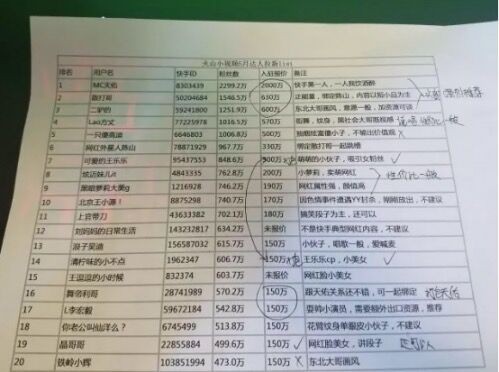 火山小视频5月达人拉新list
排名 用户名 快手ID 粉丝数 入驻报价 备注
1 MC天佑 8303439 2299.2万 2000万 快手第一人，一人我饮酒醉
2 散打哥 50204684 1546.5万 630万 正能量，绑定陈山，内容以短小品为主
3 二驴的 59241800 1251.9万 600万 东北大哥画风，意愿一般，加资源可谈
4 Lao方丈 77225978 1016.5万 570万 街舞，纹身，黑社会大哥既视感
5 6646803 1006.8万 500万 独眼炫富嗓小子，不输出价值观
6 网红外星人陈山 78871929 967.7万 330万 绑定散打哥一起跳槽
7 可爱的王乐乐 95437553 848.6万 500万 萌萌的小伙，吸引女粉丝
8 4843335 762.8万 200万 小萝莉，卖萌网红
9 黑眼萝莉大美g 1216928 746.2万 190万 网红属性强，颜值高
10 北京王小源！ 8875298 740.7万 170万 因色情事件遭遇YY封杀，刚刚放出，不建议
11 上官带刀 43633382 702.1万 180万 搞笑段子为主，还可以
12 刘妈妈的日常生活 143232817 634.2万 未报价 不是快手典型网红内容，不建议
13 浪子吴迪 156587032 615.7万 150万 小伙子，唱歌一般，爱喊麦
14 清柠味的小不点 1962347 606.7万 150万 王乐乐cp，小美女
15 王逗逗的小时候 832374 603.7万 未报价 网红脸小美女
16 舞帝利哥 28741989 570.2万 150万 跟天佑关系还不错，可一起绑定
17 L李宏毅 59672184 542.8万 150万 耍帅小演员，需要额外出口资源，推荐
18 你老公叫仙洋么？ 6745499 513.8万 150万 花臂纹身单眼皮小伙子，不建议
19 晶哥哥 22855884 499.6万 150万 网红脸美女，讲段子
20 铁岭小辉 103851994 473.0万 150万 东北大哥画风